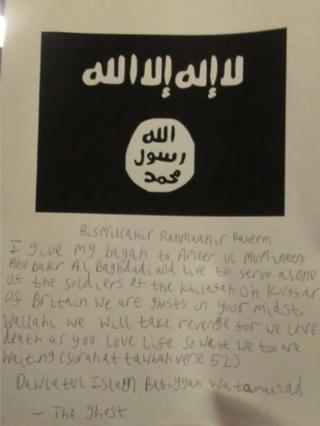 لا إله إلا الله
الله
رسول
محمد
Bismillahir Rahmaanir Raheem
I give my biyah to Ameer ul mumineen
Abu bakr Al Baghdadi and live to serve as one
of the soldiers of the khilafah Oh kuffar
Of Britain we are ghosts in your midst.
Wallahi we will take revenge for we love
death as you love life so wait we too are
Waiting (surah at tawbah verse 52)
Dawlatul Islam Baqiyyah
— The Ghost